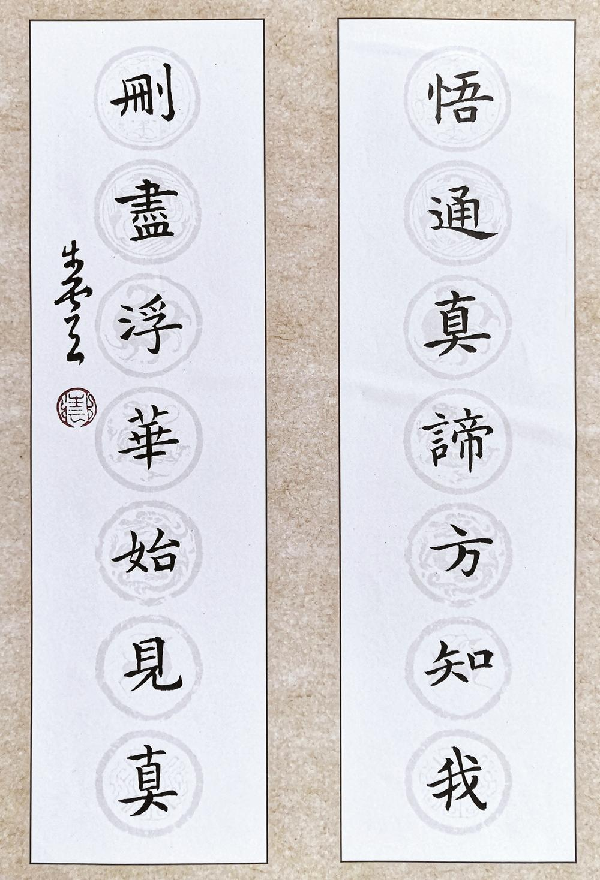 悟通真諦方知我
刪盡浮華始見真